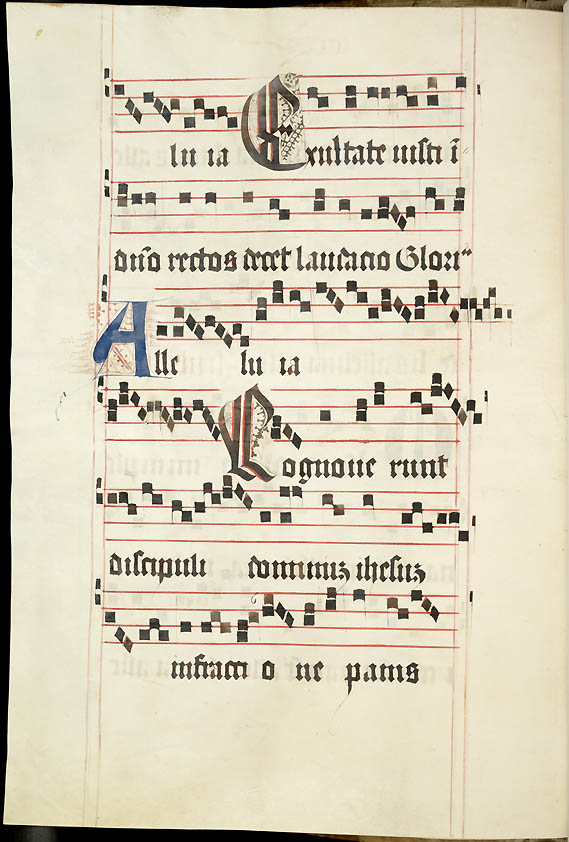 lu ia Exultate iusti ī
dnō rectos decet laudacio Glori"
Alle lu ia
Cognoue runt
discipuli dominuʒ ihesuʒ
infracci o ne panis